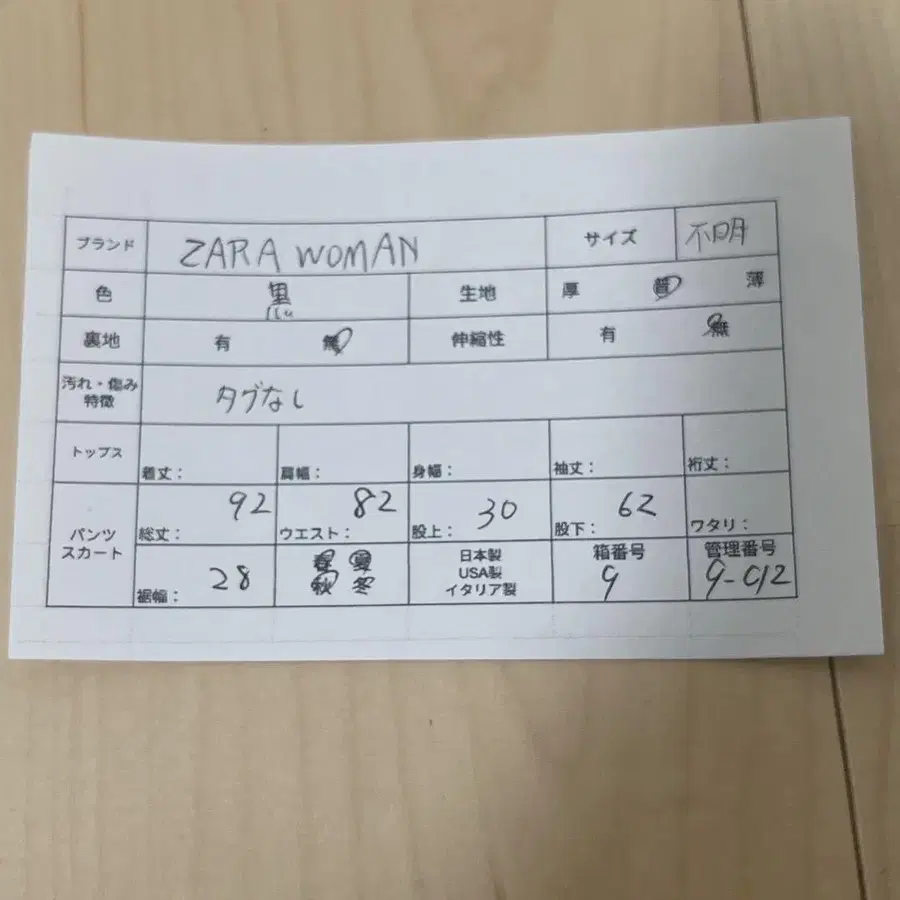 ブランド ZARA WOMAN サイズ 不明
色 黒 生地 厚 普 薄
裏地 有 無 伸縮性 有 無
汚れ・傷み
特徴 タグなし
トップス 着丈： 肩幅： 身幅： 袖丈： 裄丈：
パンツ
スカート
総丈： 92 ウエスト： 82 股上： 30 股下： 62 ワタリ：
裾幅： 28
春 夏
秋 冬
日本製
USA製
イタリア製
箱番号
9
管理番号